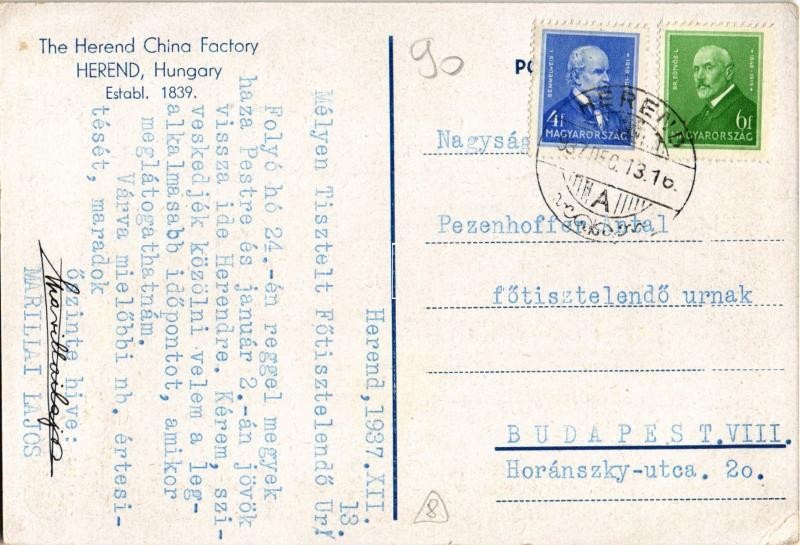 The Herend China Factory
HEREND, Hungary
Establ. 1839.
Herend, 1937. XII.
13.
Mélyen Tisztelt Főtisztelendő Ur!
Folyó hó 24.-én reggel megyek
haza Pestre és január 2.-án jövök
vissza ide Herendre. Kérem, szi-
veskedjék közölni velem a leg-
alkalmasabb időpontot, amikor
meglátogathatnám.
Várva mielőbbi nb. értesi-
tését, maradok
őszinte hive:
MARILIAI LAJOS
90
SEMMELWEIS I.
1818-1865
4f
MAGYARORSZÁG
BR. EÖTVÖS L.
1848-1919
6f
MAGYARORSZÁG
HEREND
937 DEC. 13. 16
A
Nagyság
Pezenhoffer Antal
főtisztelendő urnak
BUDAPEST. VIII.
Horánszky-utca. 2o.
8